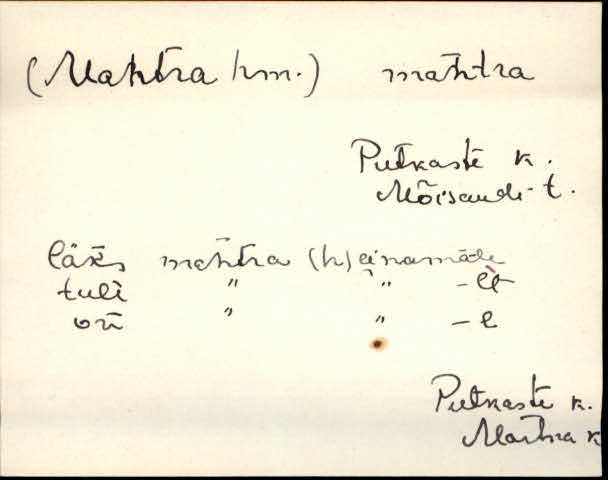 (Mahtra hm.) mahtra
Putkaste k.
Mõisaude t.
läks mahtra (h)einamäle
tuli " " -lt
on " " -l
Putkaste k.
Martna k